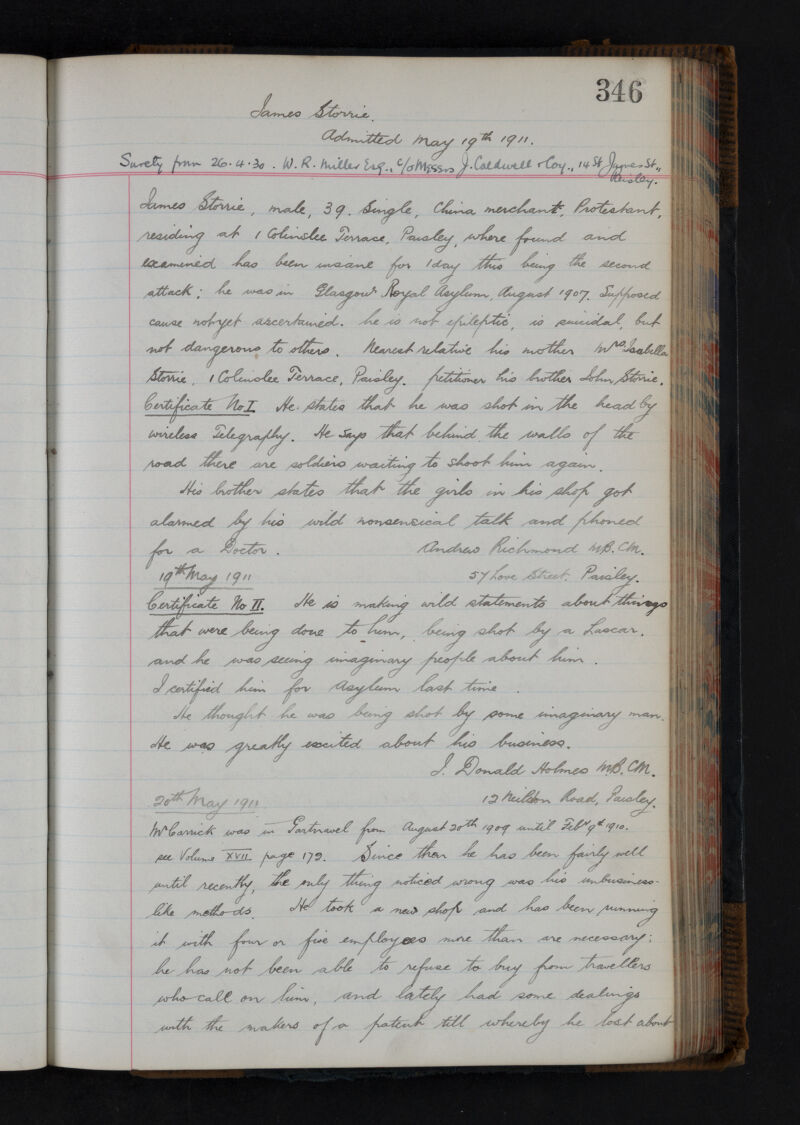 346
James Storrie.
Admitted May 19th 1911.
Surety from 26.4.30. W. R. Miller Esq., c/o Messrs J. Caldwell & Coy., 14 St James St.,
Paisley.
James Storrie, male, 39. Single, China merchant, Protestant,
residing at 1 Colinslee Terrace, Paisley, where found and
examined has been insane for 1 day this being the second
attack; he was in Glasgow Royal Asylum, August 1907. Supposed
cause not yet ascertained. he is not epileptic, is suicidal, but
not dangerous to others. Nearest relative his mother Mrs Isabella
Storrie, 1 Colinslee Terrace, Paisley. petitioner his brother John Storrie.
Certificate No I. He states that he was shot in the head by
wireless Telegraphy. He says that behind the walls of the
road there are soldiers waiting to shoot him again.
His brother states that the girls in his shop got
alarmed by his wild nonsensical talk and phoned
for a Doctor. Andrew Richmond M.B. CM.
19th May 1911 57 Love Street. Paisley.
Certificate No II. He is making wild statements about things
that were being done to him, being shot by a Lascar.
and he was seeing imaginary people about him.
I certified him for Asylum last time.
He thought he was being shot by some imaginary man.
He was greatly excited about his business.
J. Donald Holmes M.B. CM.
20th May 1911 12 Neilston Road, Paisley.
Mr Carrick was in Gartnavel from August 20th 1909 until Feby 9th 1910.
see Volume XVII page 172. Since then he has been fairly well
until recently, the only thing noticed wrong was his unbusiness-
like methods. He took a new shop and has been running
it with four or five employees more than are necessary;
he has not been able to refuse to buy from travellers
who call on him, and lately had some dealings
with the makers of a patent till whereby he lost about